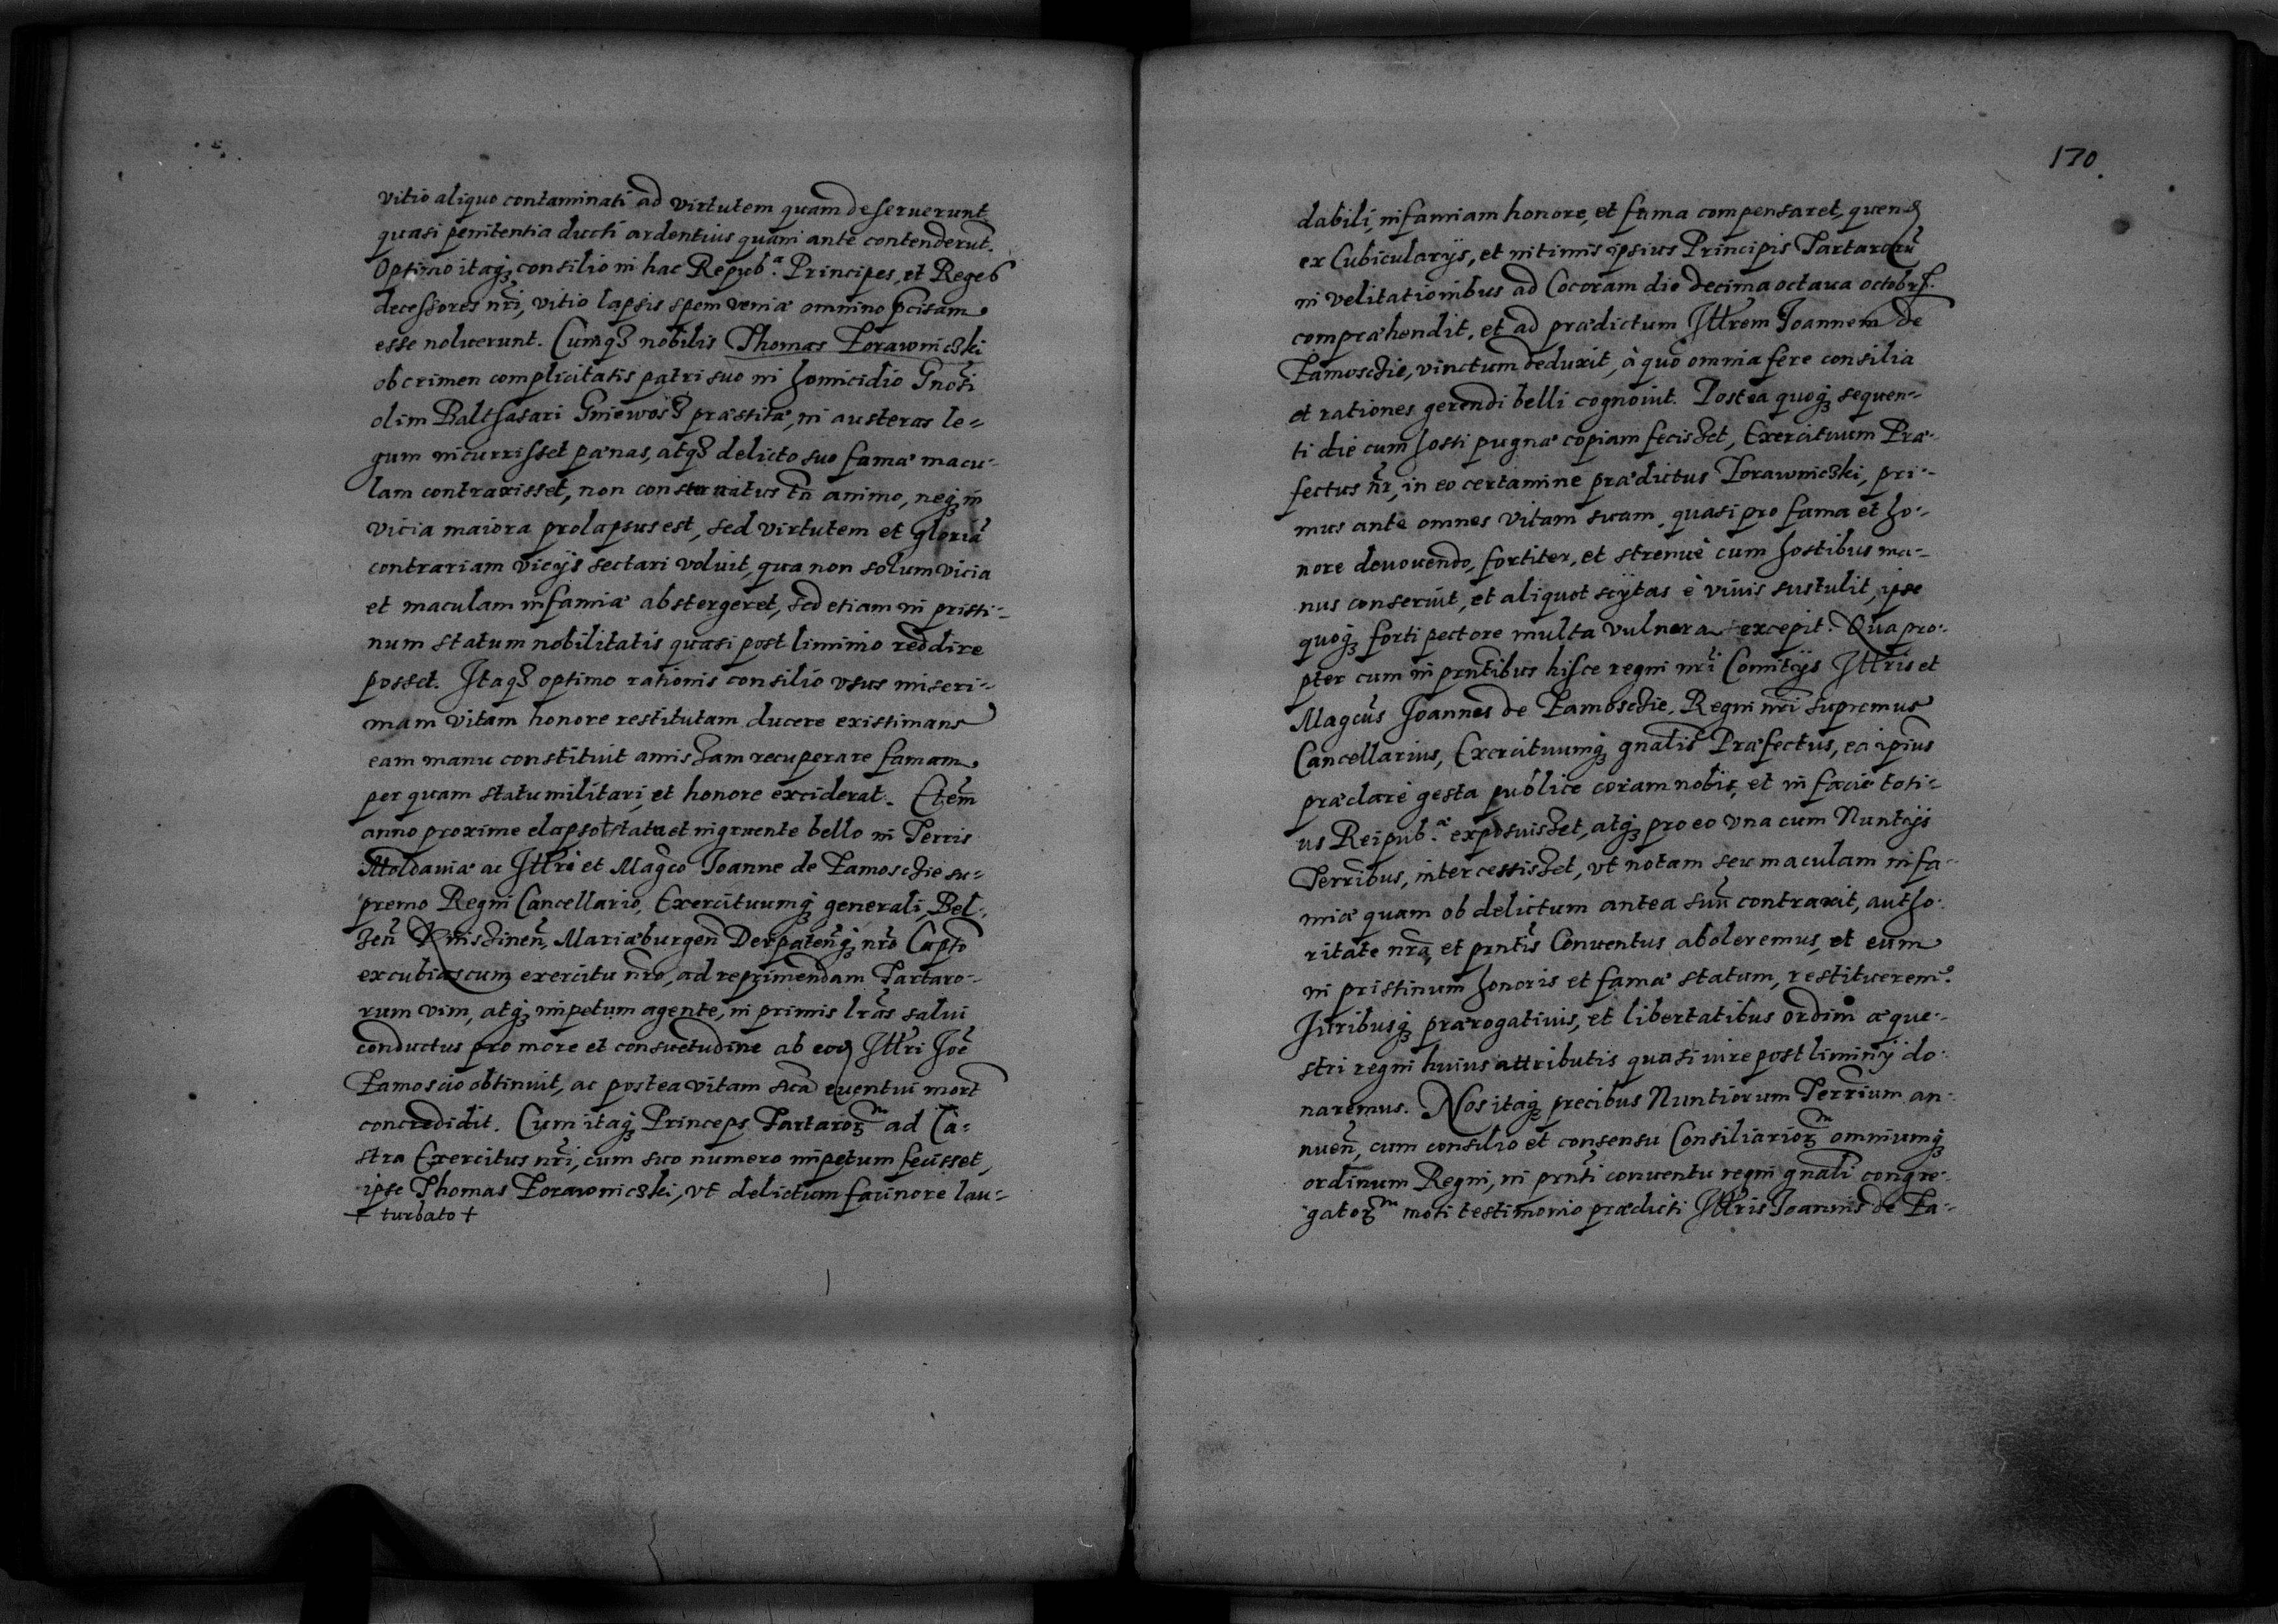 vitio aliquo contaminati ad virtutem quam deseruerunt
quasi penitentia ducti ardentius quam ante contenderūt.
Optimo itaq; consilio in hac Repub.ᵃ Principes, et Reges
decessores nr̄i, vitio lapsis spem veniæ omnino pcisam
esse noluerunt. Cumq; nobilis Thomas Zorawniczki
ob crimen complicitatis patri suo in homicidio Gnosi
olim Balthasari Gniewosz præstitæ, in austeras le-
gum incurrisset pœnas, atq; delicto suo famæ macu-
lam contraxisset, non consternatus tn̄ animo, neq; in
vicia maiora prolapsus est, sed virtutem et gloriā
contrariam vicijs sectari voluit, qua non solum vicia
et maculam infamiæ abstergeret, sed etiam in pristi-
num statum nobilitatis quasi post liminio reddire
posset. Itaq; optimo rationis consilio usus miseri-
mam vitam honore restitutam ducere existimans
eam manu constituit amissam recuperare famam
per quam statu militari, et honore exciderat. Etem̄
anno proxime elapso † statu et ingruente bello in Terris
Moldaviæ ac Illr̄i et Magco Joanne de Zamosczie su-
premo Regni Cancellario, Exercituumq; generali, Bel-
zen̄ Knischinen̄, Mariæburgen̄ Derpaten̄q; nr̄o Capto
excubias cum exercitu nr̄o, ad reprimendam Tartaro-
rum vim, atq; impetum agente, in primis lr̄as salvi
conductus pro more et consuetudine ab eod Illr̄i Joē
Zamoscio obtinuit, ac postea vitam suā eventui mort
concredidit. Cum itaq; Princeps Tartaroꝝᵐ ad Ca-
stra Exercitus nr̄i, cum suo numero impetum fecisset,
ipse Thomas Zorawniczki, vt delictum facinore lau-
† turbato †
170
dabili, infamiam honore, et fama compensaret, quend
ex Cubicularijs, et intimis ipsius Principis Tartarorū
in velitationibus ad Cocoram die decima octava octobrs.
compræhendit, et ad prædictum Illr̄em Joannem de
Zamosczie, vinctum deduxit, à quo omnia fere consilia
et rationes gerendi belli cognovit. Postea quoq; sequen-
ti die cum hosti pugnæ copiam fecisset, Exercituum Præ-
fectus nr̄, in eo certamine prædictus Zorawniczki, pri-
mus ante omnes vitam suam, quasi pro fama et ho-
nore devovendo, fortiter, et strenuè cum hostibus ma-
nus conseruit, et aliquot scÿtas è vivis sustulit, ipse
quoq; forti pectore multa vulnera excepit. Qua pro-
pter cum in prn̄tibus hisce regni nr̄i Comitijs Illr̄is et
Magcūs Joannes de Zamosczie, Regni nr̄i supremus
Cancellarius, Exercituumq; gnalis Præfectus, ea ipsius
præclarè gesta publice coram nobis, et in facie toti-
us Reipub.ᵃ exposuisset, atq; pro eo una cum Nuntijs
Terribus, intercessisset, vt notam seu maculam infa-
miæ quam ob delictum antea suū contraxit, autho-
ritate nr̄a, et prn̄tis Conventus aboleremus, et eum
in pristinum honoris et famæ statum, restitueremꝰ.
Juribusq; prærogativis, et libertatibus ordini æque-
stri regni huius attributis quasi iure postliminij do-
naremus. Nos itaq; precibus Nuntiorum Terrium an-
nuen̄, cum consilio et consensu Consiliarioꝝᵐ omniumq;
ordinum Regni, in prn̄ti conventu regni gnali congre-
gatoꝝᵐ moti testimonio prædicti Illr̄is Joannis de Za-